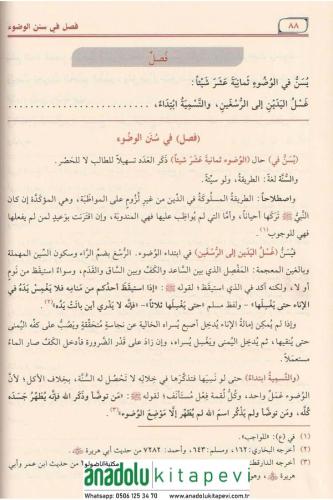 ٨٨
فصل في سنن الوضوء
فَصْلٌ
يُسَنُّ في الوُضُوءِ ثَمانِيَةَ عَشَرَ شَيْئاً:
غَسْلُ اليَدَيْنِ إلى الرُّسْغَينِ، والتَّسْمِيَةُ ابْتِدَاءً،
(فصل) في سُنَن الوضُوء
(يُسَنُّ في) حال (الوضُوءِ ثمانيةَ عشرَ شيئاً) ذكَر العدَد تسهيلاً للطالب لا للحَصْر.
والسُّنَّة لغةً: الطريقةُ، ولو سيِّئة.
واصطلاحاً: الطريقةُ المسلُوكَةُ في الدِّين من غير لُزُومٍ على المواظَبَة، وهي المؤكَّدة إن كان
النبيُّ ﷺ تركَها أحياناً، وأمَّا التي لم يُواظِب عليها فهي المندوبَة، وإن اقترنَت بوَعيدٍ لمن لم يفعلها
فهي للوجوب(١).
فيُسَنُّ (غَسْلُ اليَدَين إلى الرُّسْغَين) في ابتداء الوُضوء. الرُّسْغ بضمِّ الرَّاء وسكون السِّين المهملة
وبالغين المعجمة: المَفْصِل الذي بين الساعد والكَفِّ وبين الساق والقَدَم، وسواءٌ استيقظ من نَومٍ
أو لا، ولكنه آكد في الذي استيقظَ؛ لقوله ﷺ: «إذا استيقَظَ أحدُكم من مَنامِه فلا يَغْمِسْ يَدَهُ في
الإناء حتى يَغْسِلَها» - ولفظ مسلم «حتى يَغْسِلَها ثلاثاً» - «فإنَّه لا يَدْرِي أينَ باتَتْ يَدُه»(٢).
وإذا لم يُمكن إمالةُ الإناء يُدخِل أصبعَ يسراه الخاليَة عن نجاسةٍ متحقَّقة ويَصُبُّ على كفِّه اليمنَى
حتى يُنقيها، ثم يُدخِل اليمنى ويَغسِل يُسراه، وإن زادَ على قَدْر الضَّرورة فأدخَل الكفَّ صار الماءُ
مستعملاً.
(والتَّسْمِيَةُ ابتداءً) حتى لو نَسِيَها فتذكَّرها في خِلاله لا تَحْصُل له السُّنَّة، بخلاف الأكل؛ لأنَّ
الوُضوء عَملٌ واحد، وكلُّ لُقمة فِعلٌ مستأنَف؛ لقوله ﷺ: «مَن توضَّأ وذَكَر اللهَ فإنَّه يُطَهِّر جَسَدَه
كلَّه، ومَن توضَّأ ولم يَذكُر اسمَ الله لم يُطَهِّر إلَّا مَوْضِعَ الوُضوء»(٣).
(١) في (ع): «للواجب».
(٢) أخرجه البخاري: ١٦٢، ومسلم: ٦٤٣، وأحمد: ٧٢٨٢ من حديث أبي هريرة
(٣) أخرجه الدارقطني
من حديث ابن عمر وأبي
هريرة
مكتبة الأناضول
anadolukitapevi
Whatsapp: 0506 125 34 70 - www.anadolukitapevi.com.tr